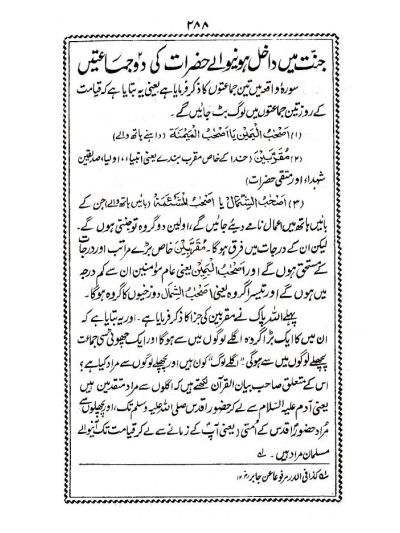 ۳۸۸
جنّت میں داخل ہونیوالے حضرات کی دو جماعتیں
سورۂ واقعہ میں تین جماعتوں کا ذکر فرمایا ہے یعنی یہ بتایا ہے کہ قیامت
کے روز تین جماعتوں میں لوگ بٹ جائیں گے۔
(۱) اَصْحٰبُ الْیَمِیْن یا اَصْحٰبُ الْمَیْمَنَۃ (داہنے ہاتھ والے)
(۲) مُقَرَّبِیْنَ (خدا کے خاص مقرب بندے یعنی انبیاء، اولیا، صدیقین
شہداء اور متقی حضرات)
(۳) اَصْحٰبُ الشِّمَال یا اَصْحٰبُ الْمَشْئَمَۃ (بائیں ہاتھ والے) جن کے
بائیں ہاتھ میں اعمال نامے دیئے جائیں گے، اولین دو گروہ تو جنتی ہوں گے۔
لیکن ان کے درجات میں فرق ہوگا۔ مُقَرَّبِیْنَ خاص بڑے مراتب اور درجات
کے مستحق ہوں گے اور اَصْحٰبُ الْیَمِیْن یعنی عام مؤمنین ان سے کم درجہ
میں ہوں گے اور تیسرا گروہ یعنی اَصْحٰبُ الشِّمَال دوزخیوں کا گروہ ہوگا۔
پہلے اللہ پاک نے مقربین کی جزا کا ذکر فرمایا ہے۔ اور یہ بتایا ہے کہ
ان میں کا ایک بڑا گروہ اگلے لوگوں میں سے ہوگا اور ایک چھوٹی سی جماعت
پچھلے لوگوں میں سے ہوگی "اگلے لوگ" کون ہیں اور پچھلے لوگوں سے مراد کیا ہے؟
اس کے متعلق صاحب بیان القرآن لکھتے ہیں کہ اگلوں سے مراد متقدمین ہیں
یعنی آدم علیہ السّلام سے لے کر حضور اقدس صلی اللہ علیہ وسلم تک، اور پچھلوں سے
مراد حضور اقدس کے اُمتی (یعنی آپ کے زمانے سے لے کر قیامت تک آنیوالے
مسلمان مراد ہیں۔ ؎
؎ کذا فی الدر مرفوعا عن جابر ۱۲